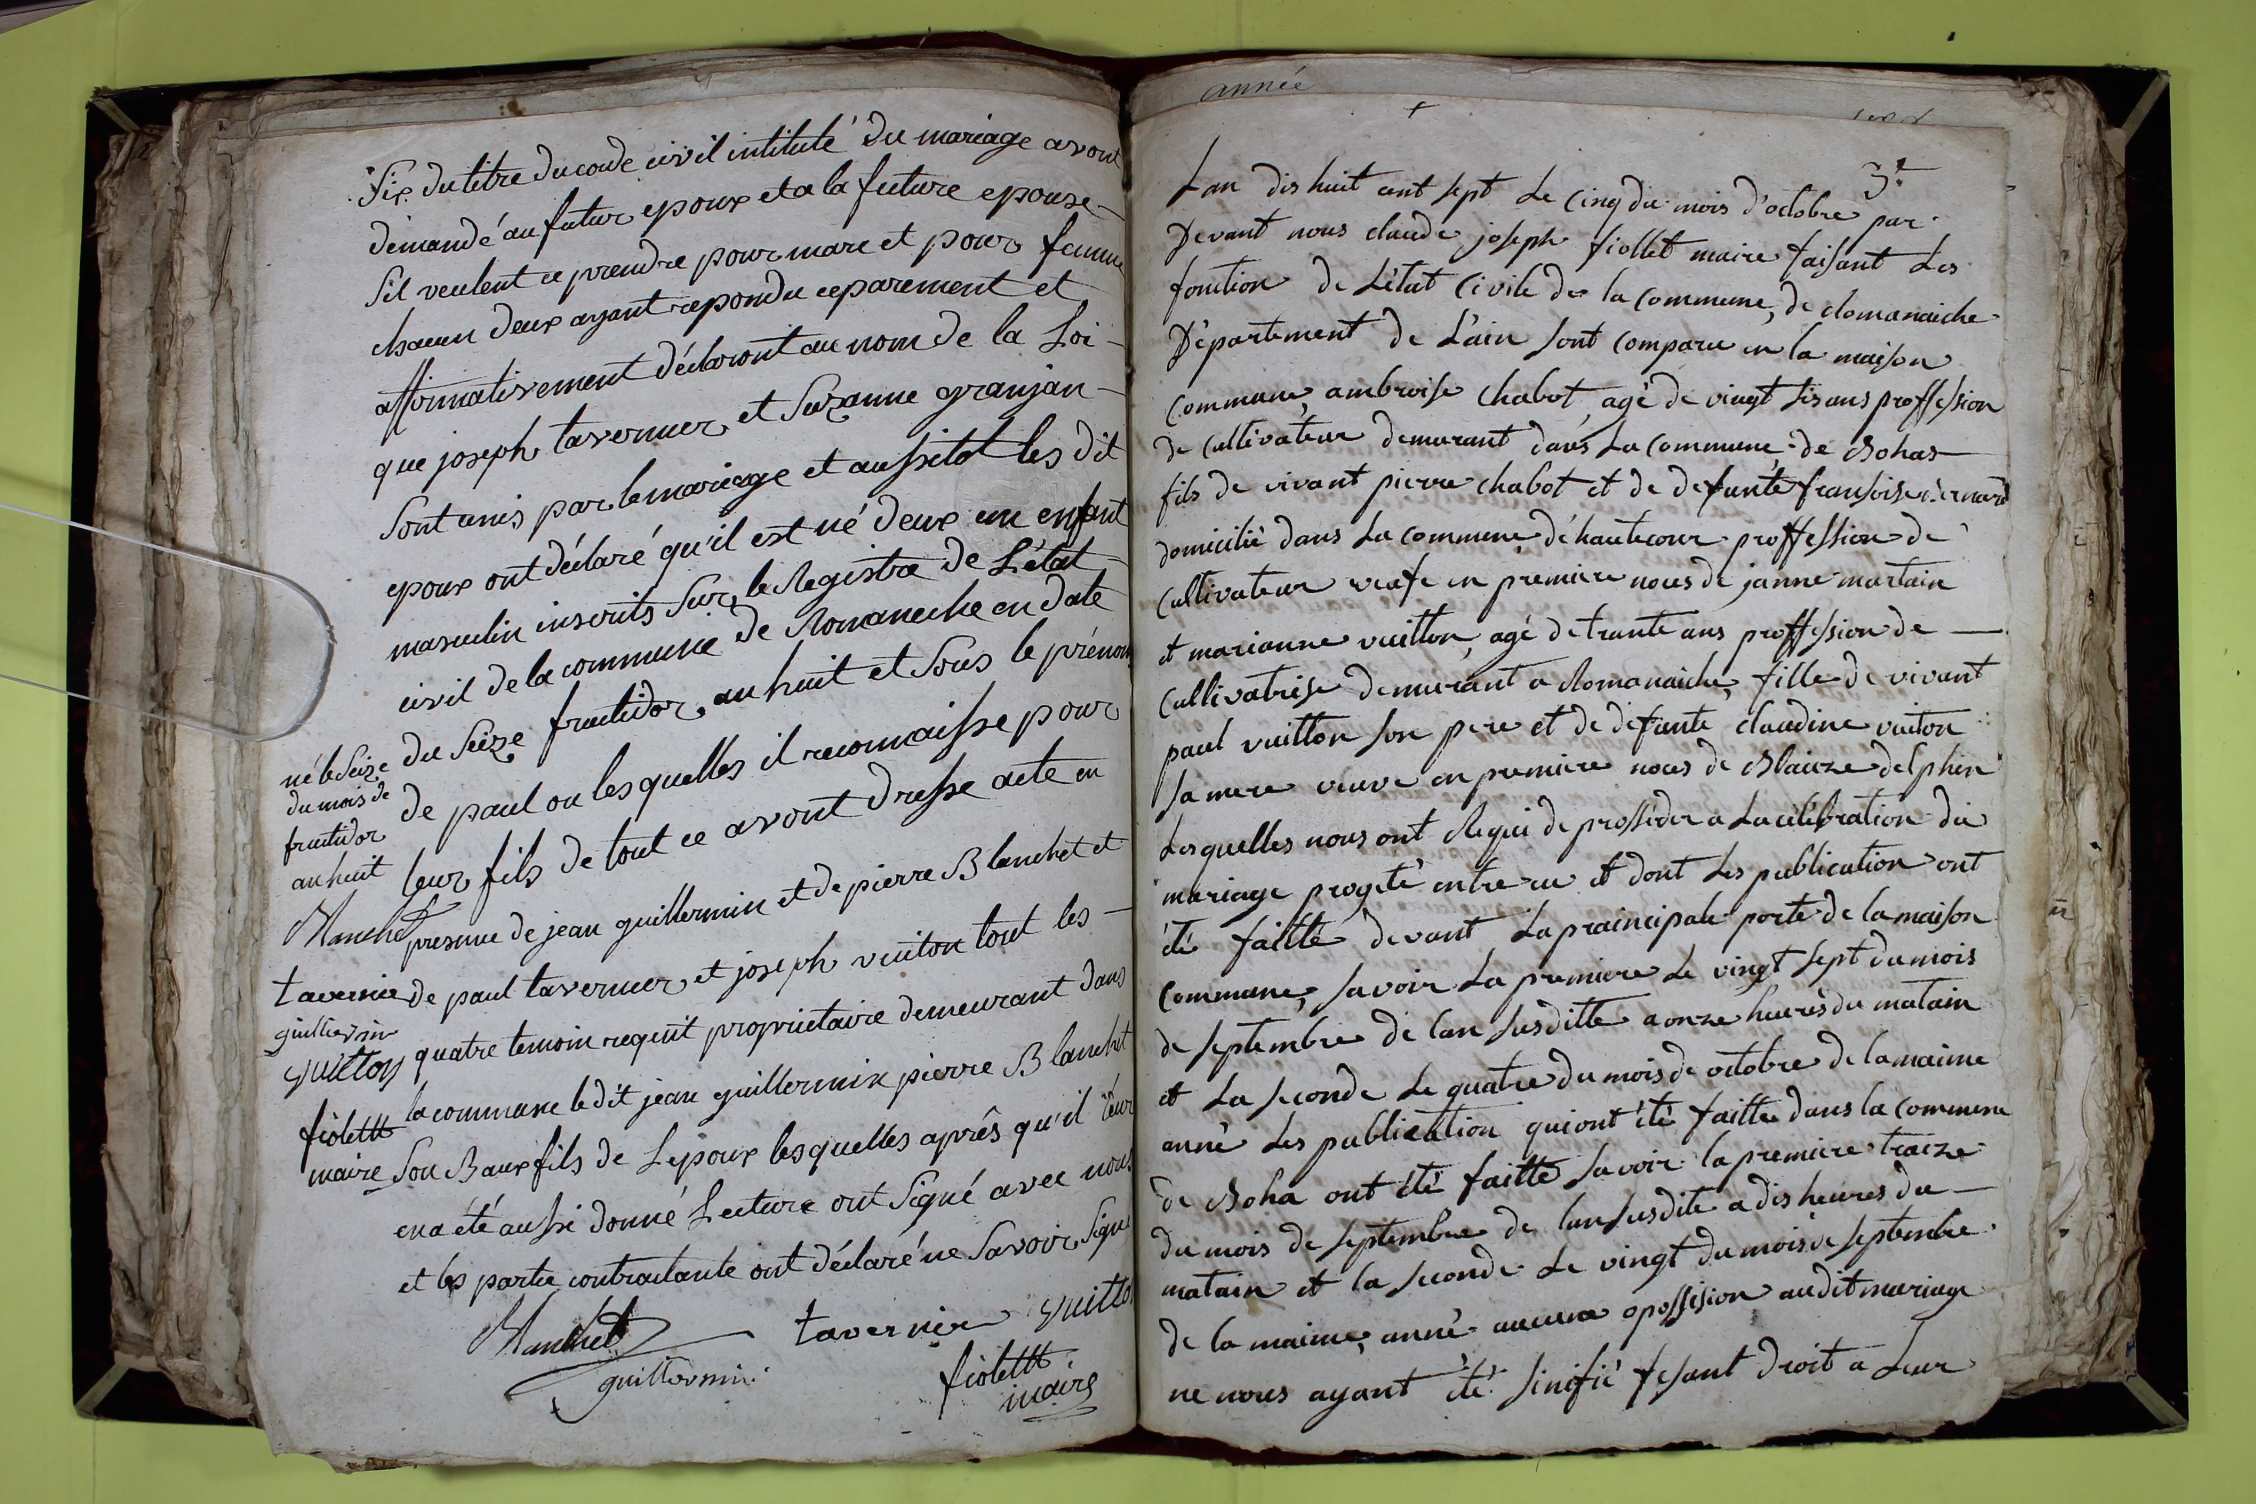 Six du titre du code civil intitulé du mariage avont
démandé au futur epoux et a la future epouse
Sil veulent ce prendre pour mare et pour femme
chacun deux ayant repondu ceparement et
affirmativement déclaront au nom de la Loi
que joseph tavernier et Suzanne granjan
Sont unis par le mariage et aussitot les dit
epoux ont déclaré qu'il est né deux un enfant
masculin inscrits Sur le Registre de L'état
civil de la commune de Romaneche en date
du Seize fructidor an huit et Sous le prénom
né le Seize
du mois de
fructidor
an huit
de paul ou lesquelles il reconnaisse pour
leur fils de tout ce avont dresse acte en
Blanchet
presence de jean guillermin et de pierre Blanchet et
tavernier
de paul tavernier et joseph vuiton tout les
guillermin
vuitton
quatre temoin requit proprietaire demeurant dans
la commune le dit jean guillermin pierre Blanchet
fiolettt
maire
Son Baux fils de Lepoux lesquelles aprês qu'il leur
en a été aussi donné Lecture ont Signé avec nous
et les partie contractante ont déclaré ne Savoir Signe
Blanchet
tavernier
vuitto
guillermin
fiolettt
maire
année
3e
Lan dis huit cent sept Le Cinq du mois d'octobre par
Devant nous claude joseph fiollet maire faisant Les
fonction de L'état Civile de la Commune de Romanaiche
Département de L'ain sont Comparu en la maison
Commune ambroise Chabot agé de vingt sis ans proffession
de Cultivateur demurant dans La Commune de Bohas
fils de vivant pierre Chabot et de defunte fransoise bernard
domicilié dans La Commune d'hautecour proffession de
Cultivateur veafe en premiere nous de janne martain
et marianne vuitton agé de trante ans proffession de
Cultivatrise demurant a Romanaiche fille de vivant
paul vuitton son pere et de defunte claudine vuiton
sa mere veuve en premiere nous de Blaize delphin
Lesquelles nous ont Requi de prosséder a La célébration du
mariage progeté entre eu et dont Les publication ont
été faitte devant La praincipale porte de la maison
Commune savoir La premiere Le vingt sept du mois
de septembre de lan susditte a onze heures du matain
et La seconde Le quatre du mois de octobre de la maime
anné Les publication qui ont été faitte dans la Commune
de Boha ont été faitte savoir la premiere traize
du mois de septembre de lan susdite a dis heures du
matain et la seconde Le vingt du mois de septembre
de la maime anné aucune opossision audit mariage
ne nous ayant été sinifié fesant droit a Leur